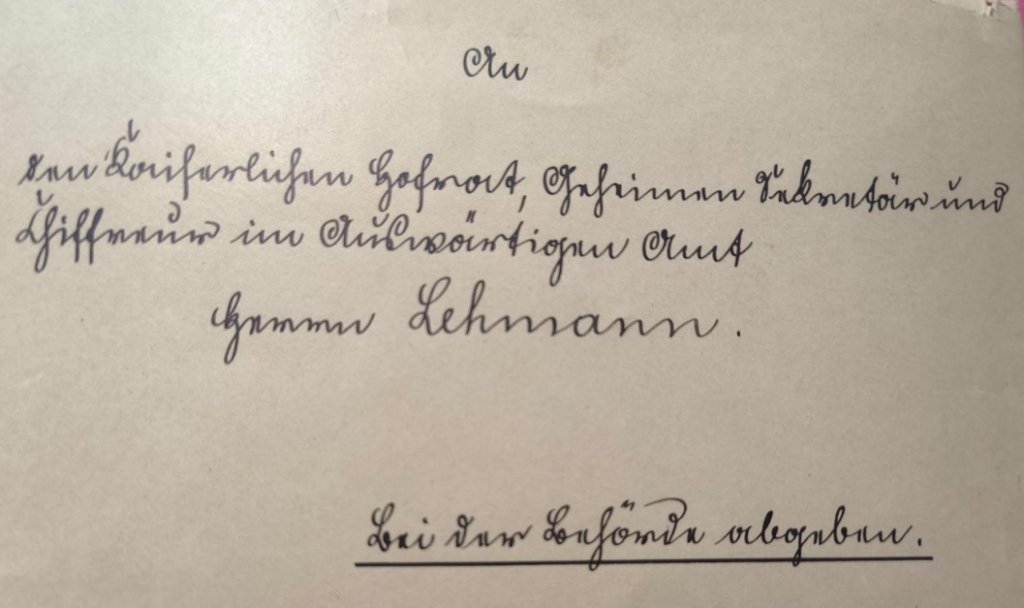 An
den Kaiserlichen Hofrat, Geheimen Sekretär und
Chiffreur im Auswärtigen Amt
Herrn Lehmann.
Bei der Behörde abgeben.